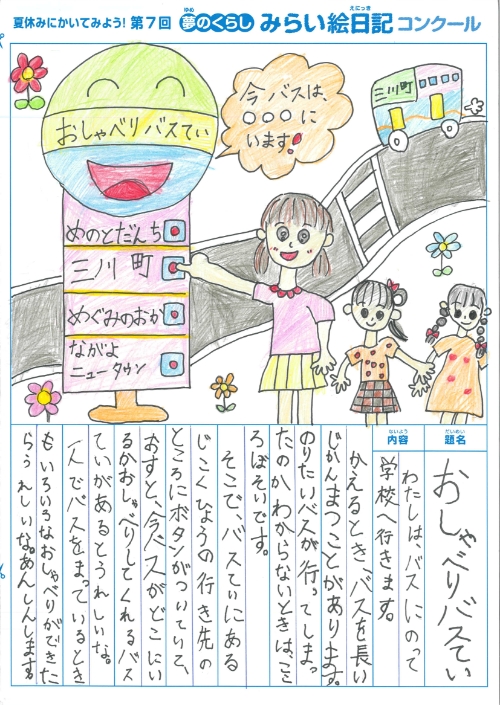 夏休みにかいてみよう! 第7回 夢のくらし みらい絵日記 コンクール
ゆめ
えにっき
おしゃべりバスてい
今バスは、
○○○に
います!
三川町
めのとだんち
三川町
めぐみのおか
ながよ
ニュータウン
だいめい
題名
おしゃべりバスてい
ないよう
内容
わたしは、バスにのって
学校へ行きます。
かえるとき、バスを長い
じかんまつことがあります。
のりたいバスが行ってしまっ
たのかわからないときは、こ
ろぼそいです。
そこで、バスていにある
じこくひょうの行き先の
ところにボタンがついていて、
おすと、今バスがどこにい
るかおしゃべりしてくれるバス
ていがあるとうれしいな。
一人でバスをまっているとき
もいろいろなおしゃべりができた
らうれしいな。あんしんします。